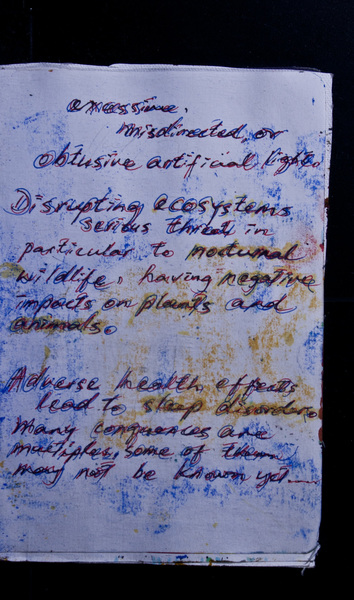 excessive,
misdirected, or
obtusive artificial light.
Disrupting ecosystems
serius thread in
particular to nocturnal
wildlife, having negative
impacts on plants and
animals.
Adverse health effects
lead to sleep disorders
many conquences are
multiples, some of them
may not be known yet....